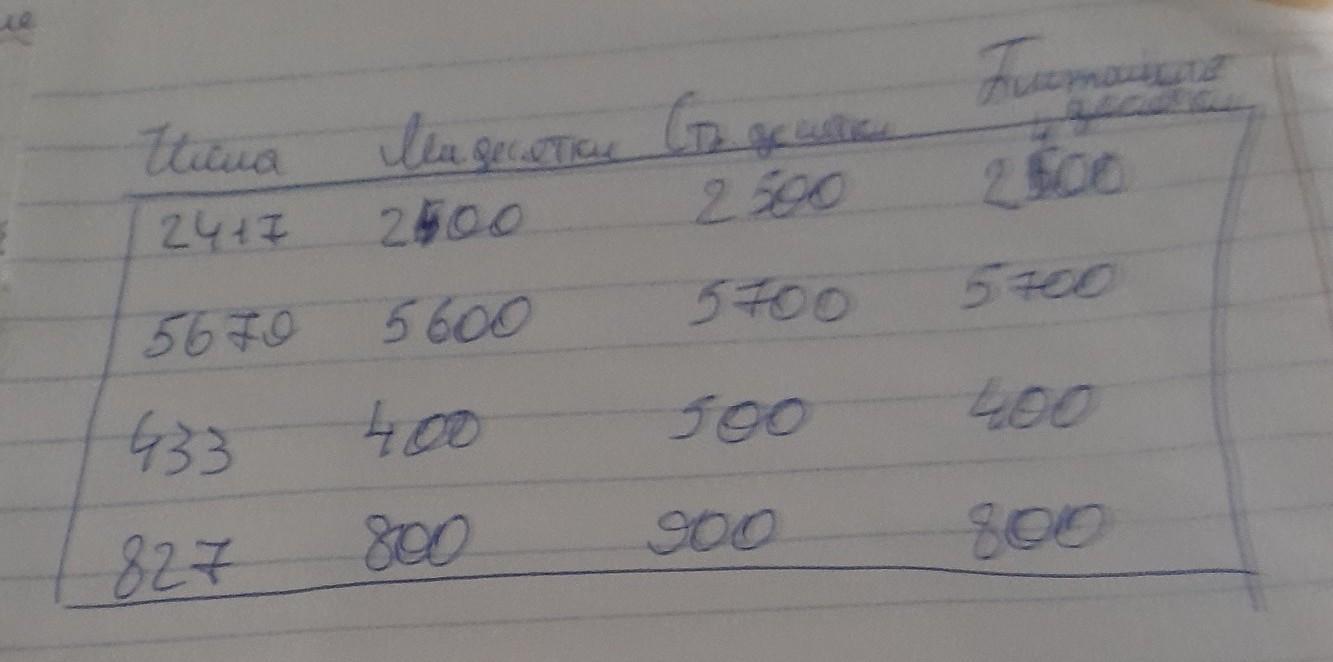 Числа Мл. десятки Ст. десятки
десятки
2417 2400 2500 2400
5670 5600 5700 5700
433 400 500 400
827 800 900 800